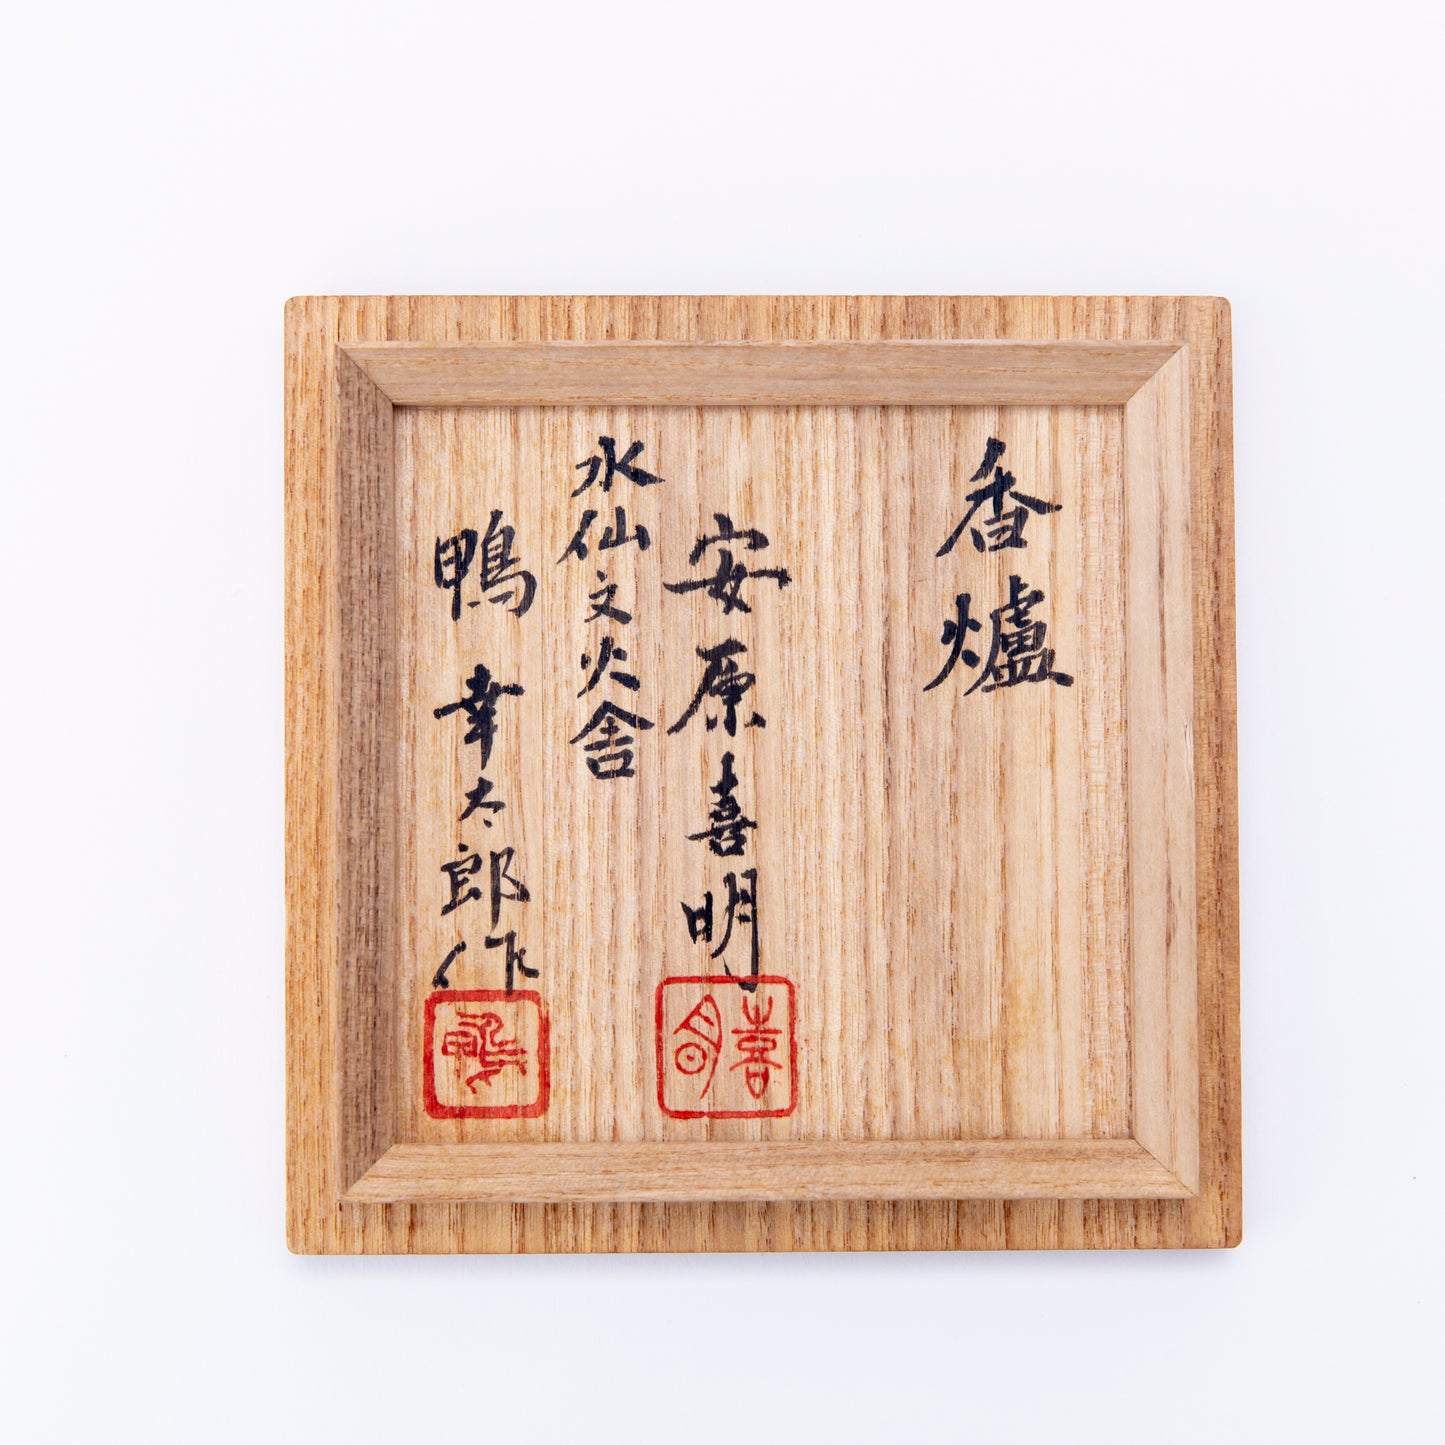 香爐
安原喜明
水仙文火舎
鴨幸太郎作
喜明
鴨